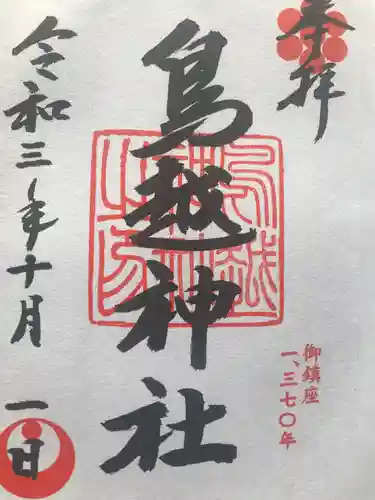 奉拝
鳥越神社
御鎮座
一、三七〇年
令和三年十月一日